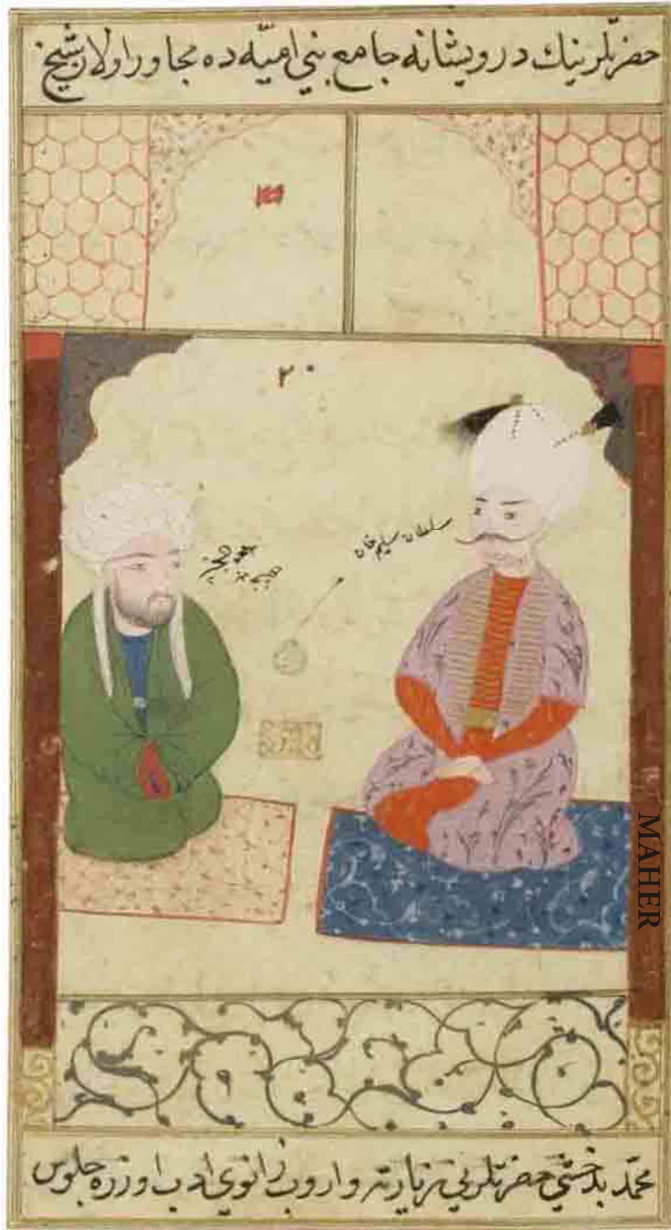 حضرتلرينك درويشانه جامع بني اميّه ده مجاور اولان شيخ
٢٠
سلطان سليم خان
MAHER
محمّد بدخشي حضرتلريني زيارته واروب زانوي ادب اوزره جلوس